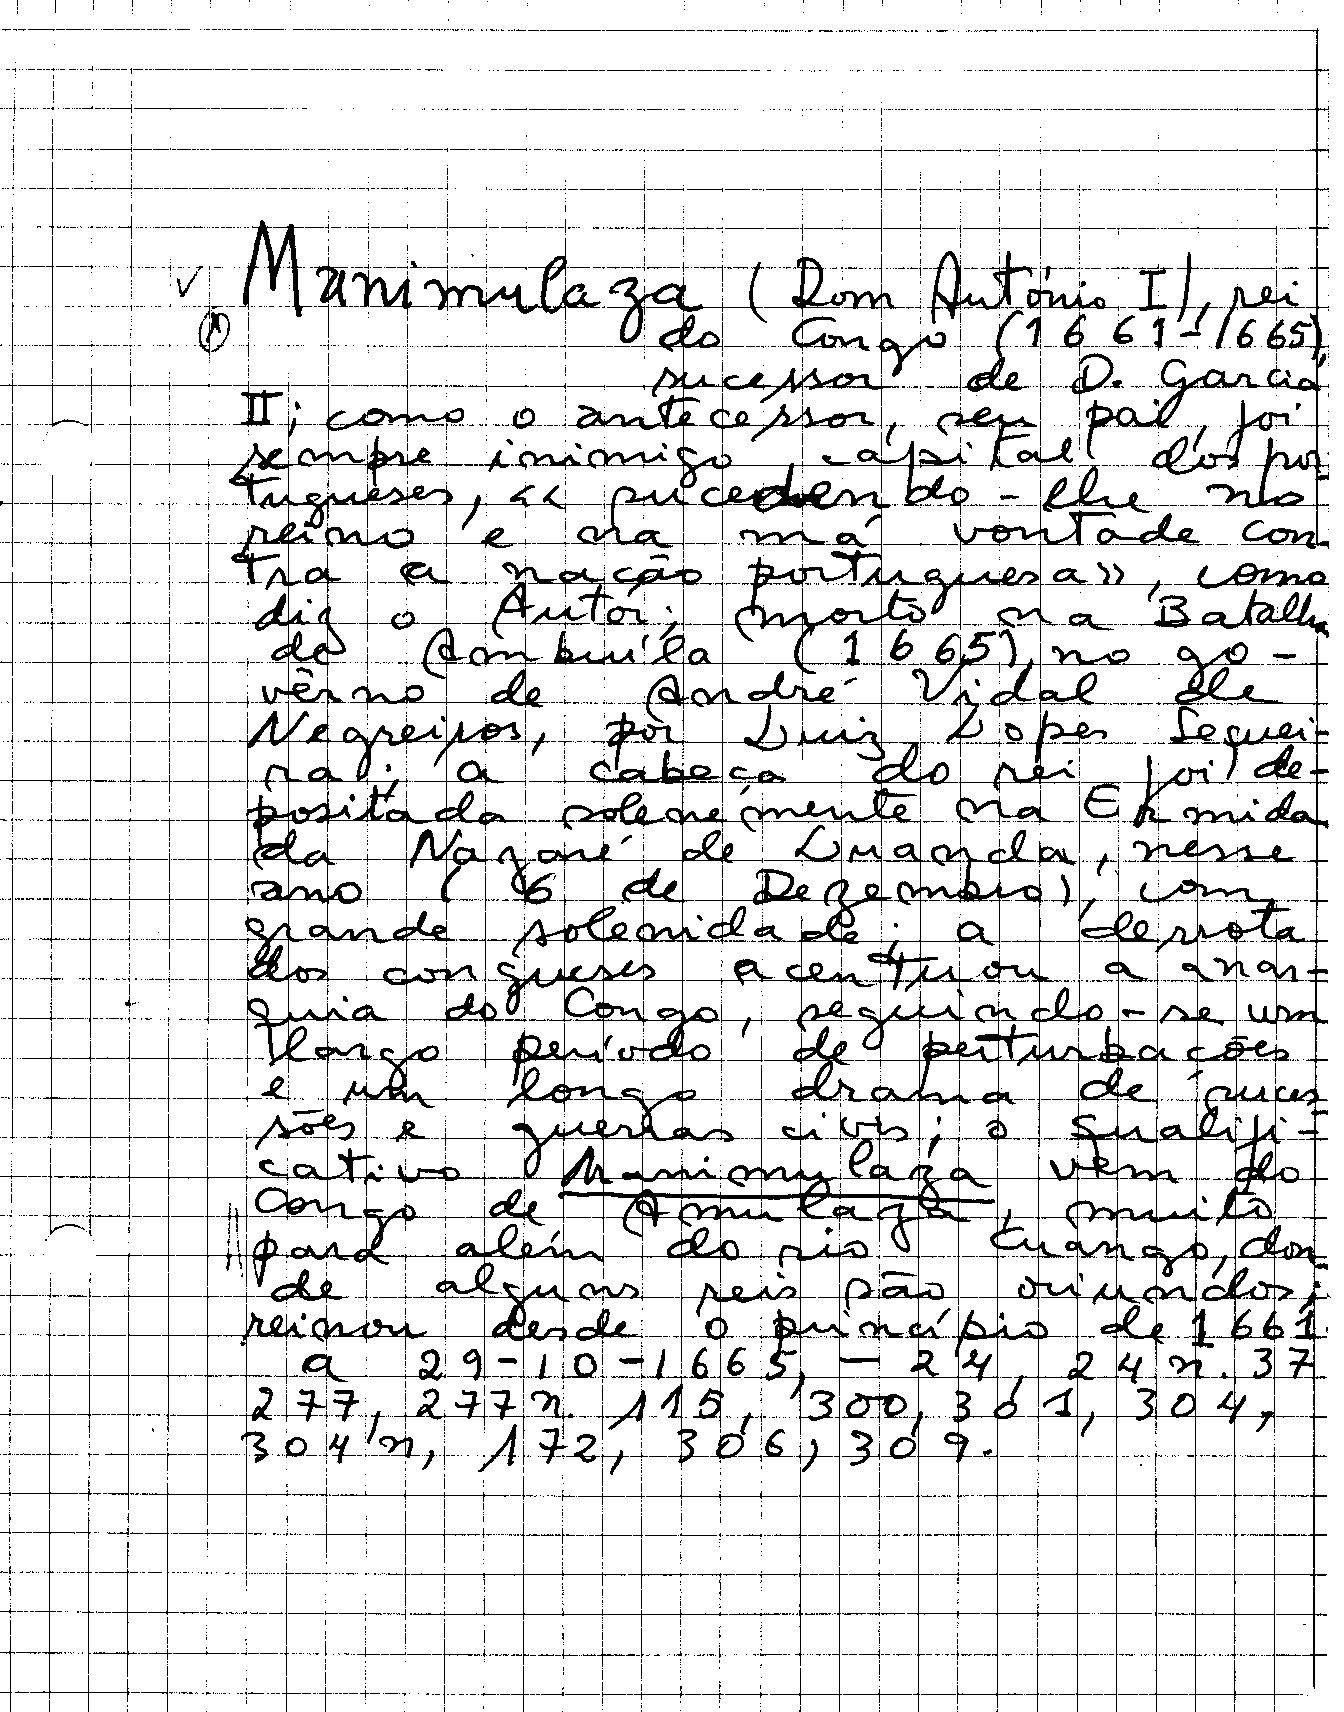 Manimulaza (Dom António I), rei
do Congo (1661-1665),
sucessor de D. Garcia
II; como o antecessor, seu pai, foi
sempre inimigo capital dos por
tugueses, << sucedendo-lhe no
reino e na má vontade con
tra a nação portuguesa>>, como
diz o Autor; morto na Batalha
de Ambuíla (1665), no go-
vêrno de André Vidal de
Negreiros, por Luiz Lopes Sequei-
ra; a cabeça do rei foi de-
positada solenemente na Ermida
da Nazaré de Luanda, nesse
ano (6 de Dezembro), com
grande solenidade; a derrota
dos congueses acentuou a anar-
quia do Congo, seguindo-se um
largo período de perturbações
e um longo drama de suces
sões e guerras civis; o qualifi-
cativo Manimulaza vem do
Congo de Amulaza, muito
para além do rio Cuango, don
de alguns reis são oriundos;
reinou desde o princípio de 1661
a 29-10-1665, - 24, 24 n. 37
277, 277 n. 115, 300, 301, 304,
304 n, 172, 306, 309.